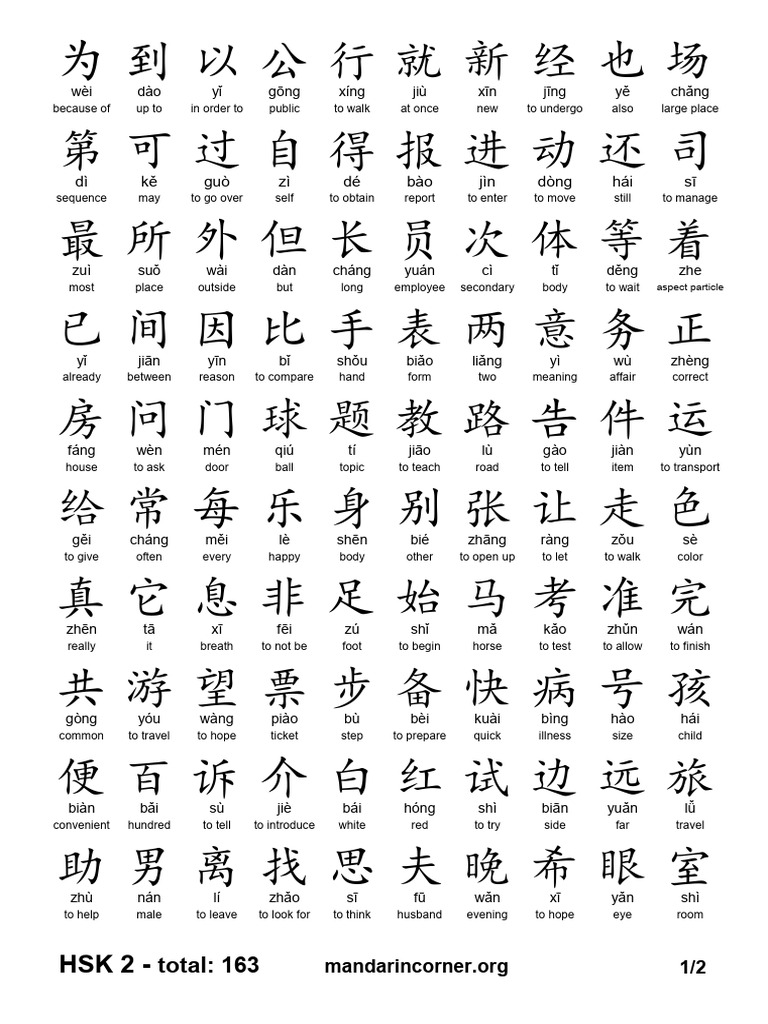 为 到 以 公 行 就 新 经 也 场
wèi dào yǐ gōng xíng jiù xīn jīng yě chǎng
because of up to in order to public to walk at once new to undergo also large place
第 可 过 自 得 报 进 动 还 司
dì kě guò zì dé bào jìn dòng hái sī
sequence may to go over self to obtain report to enter to move still to manage
最 所 外 但 长 员 次 体 等 着
zuì suǒ wài dàn cháng yuán cì tǐ děng zhe
most place outside but long employee secondary body to wait aspect particle
已 间 因 比 手 表 两 意 务 正
yǐ jiān yīn bǐ shǒu biǎo liǎng yì wù zhèng
already between reason to compare hand form two meaning affair correct
房 问 门 球 题 教 路 告 件 运
fáng wèn mén qiú tí jiāo lù gào jiàn yùn
house to ask door ball topic to teach road to tell item to transport
给 常 每 乐 身 别 张 让 走 色
gěi cháng měi lè shēn bié zhāng ràng zǒu sè
to give often every happy body other to open up to let to walk color
真 它 息 非 足 始 马 考 准 完
zhēn tā xī fēi zú shǐ mǎ kǎo zhǔn wán
really it breath to not be foot to begin horse to test to allow to finish
共 游 望 票 步 备 快 病 号 孩
gòng yóu wàng piào bù bèi kuài bìng hào hái
common to travel to hope ticket step to prepare quick illness size child
便 百 诉 介 白 红 试 边 远 旅
biàn bǎi sù jiè bái hóng shì biān yuǎn lǚ
convenient hundred to tell to introduce white red to try side far travel
助 男 离 找 思 夫 晚 希 眼 室
zhù nán lí zhǎo sī fū wǎn xī yǎn shì
to help male to leave to look for to think husband evening to hope eye room
HSK 2 - total: 163 mandarincorner.org 1/2